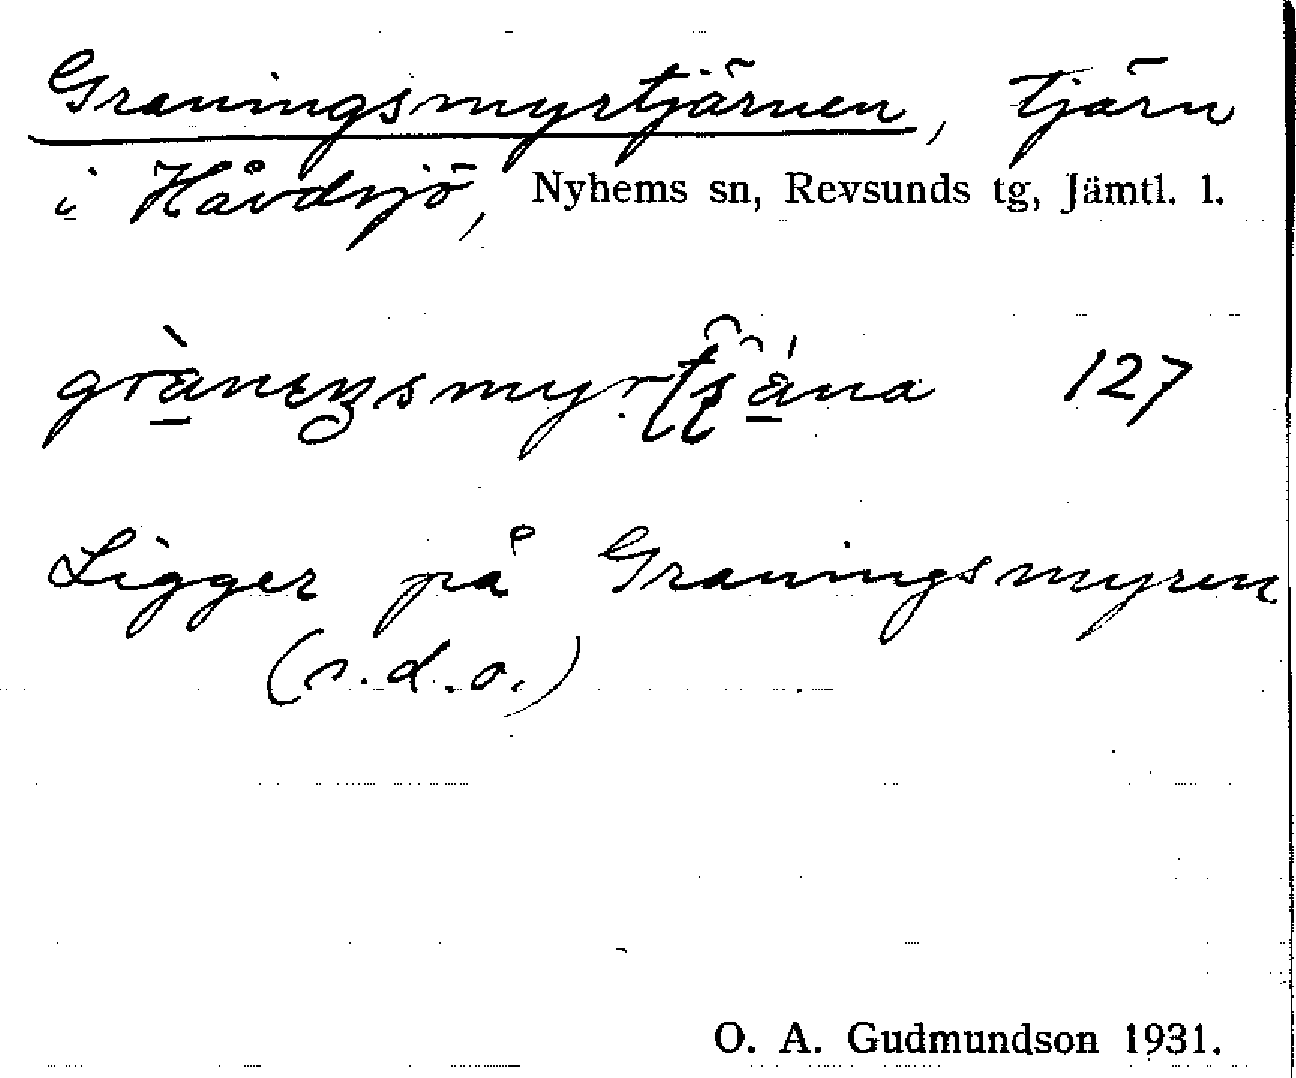 Graningsmyrtjärnen, tjärn
i Håvdsjö, Nyhems sn, Revsunds tg, Jämtl. l.
127
Ligger på Graningsmyren
(s.d.o.)
O. A. Gudmundson 1931.